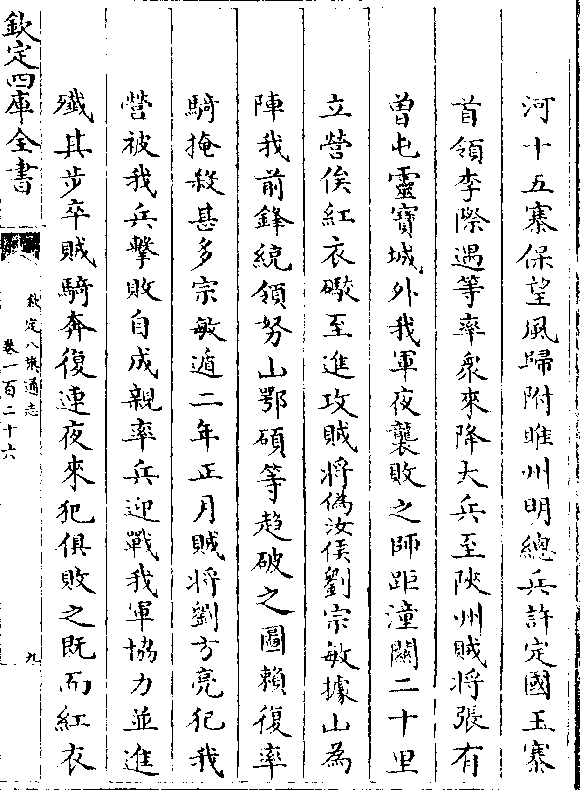 河十五寨保望風歸附睢州明總兵許定國玉寨
首領李際遇等率衆來降大兵至陜州賊將張有
曽屯靈寳城外我軍夜襲敗之師距潼闗二十里
立營俟紅衣礮至進攻賊將偽汝侯劉宗敏據山為
陣我前鋒統領努山鄂碩等趋破之圖賴復率
騎掩殺甚多宗敏遁二年正月賊將劉方亮犯我
營被我兵擊敗自成親率兵迎戰我軍協力並進
殲其步卒賊騎奔復連夜來犯俱敗之既而紅衣
欽定四庫全書
欽定八旗通志
卷一百二十六
九